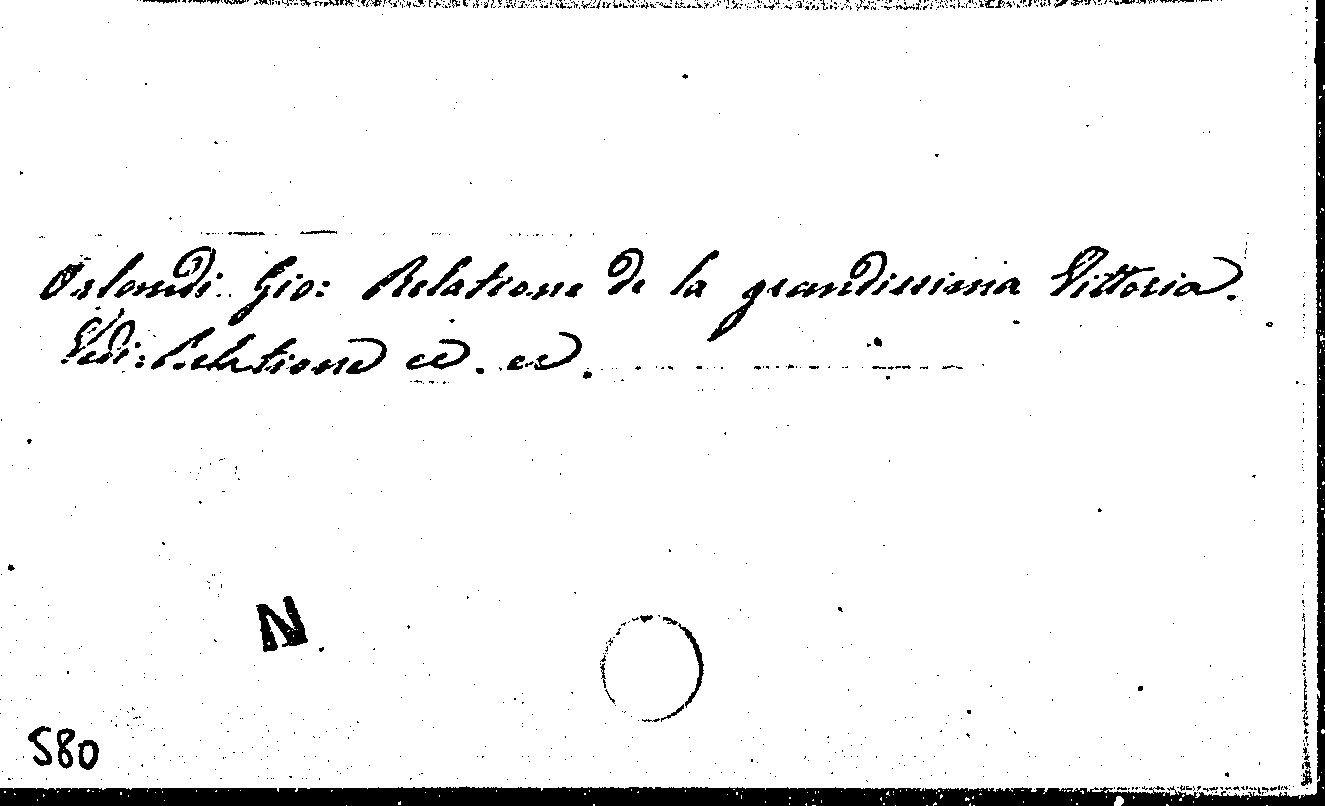 Orlandi Gio: Relatione de la grandissima Vittoria.
Vedi: Relatione ec. ec.
N
580